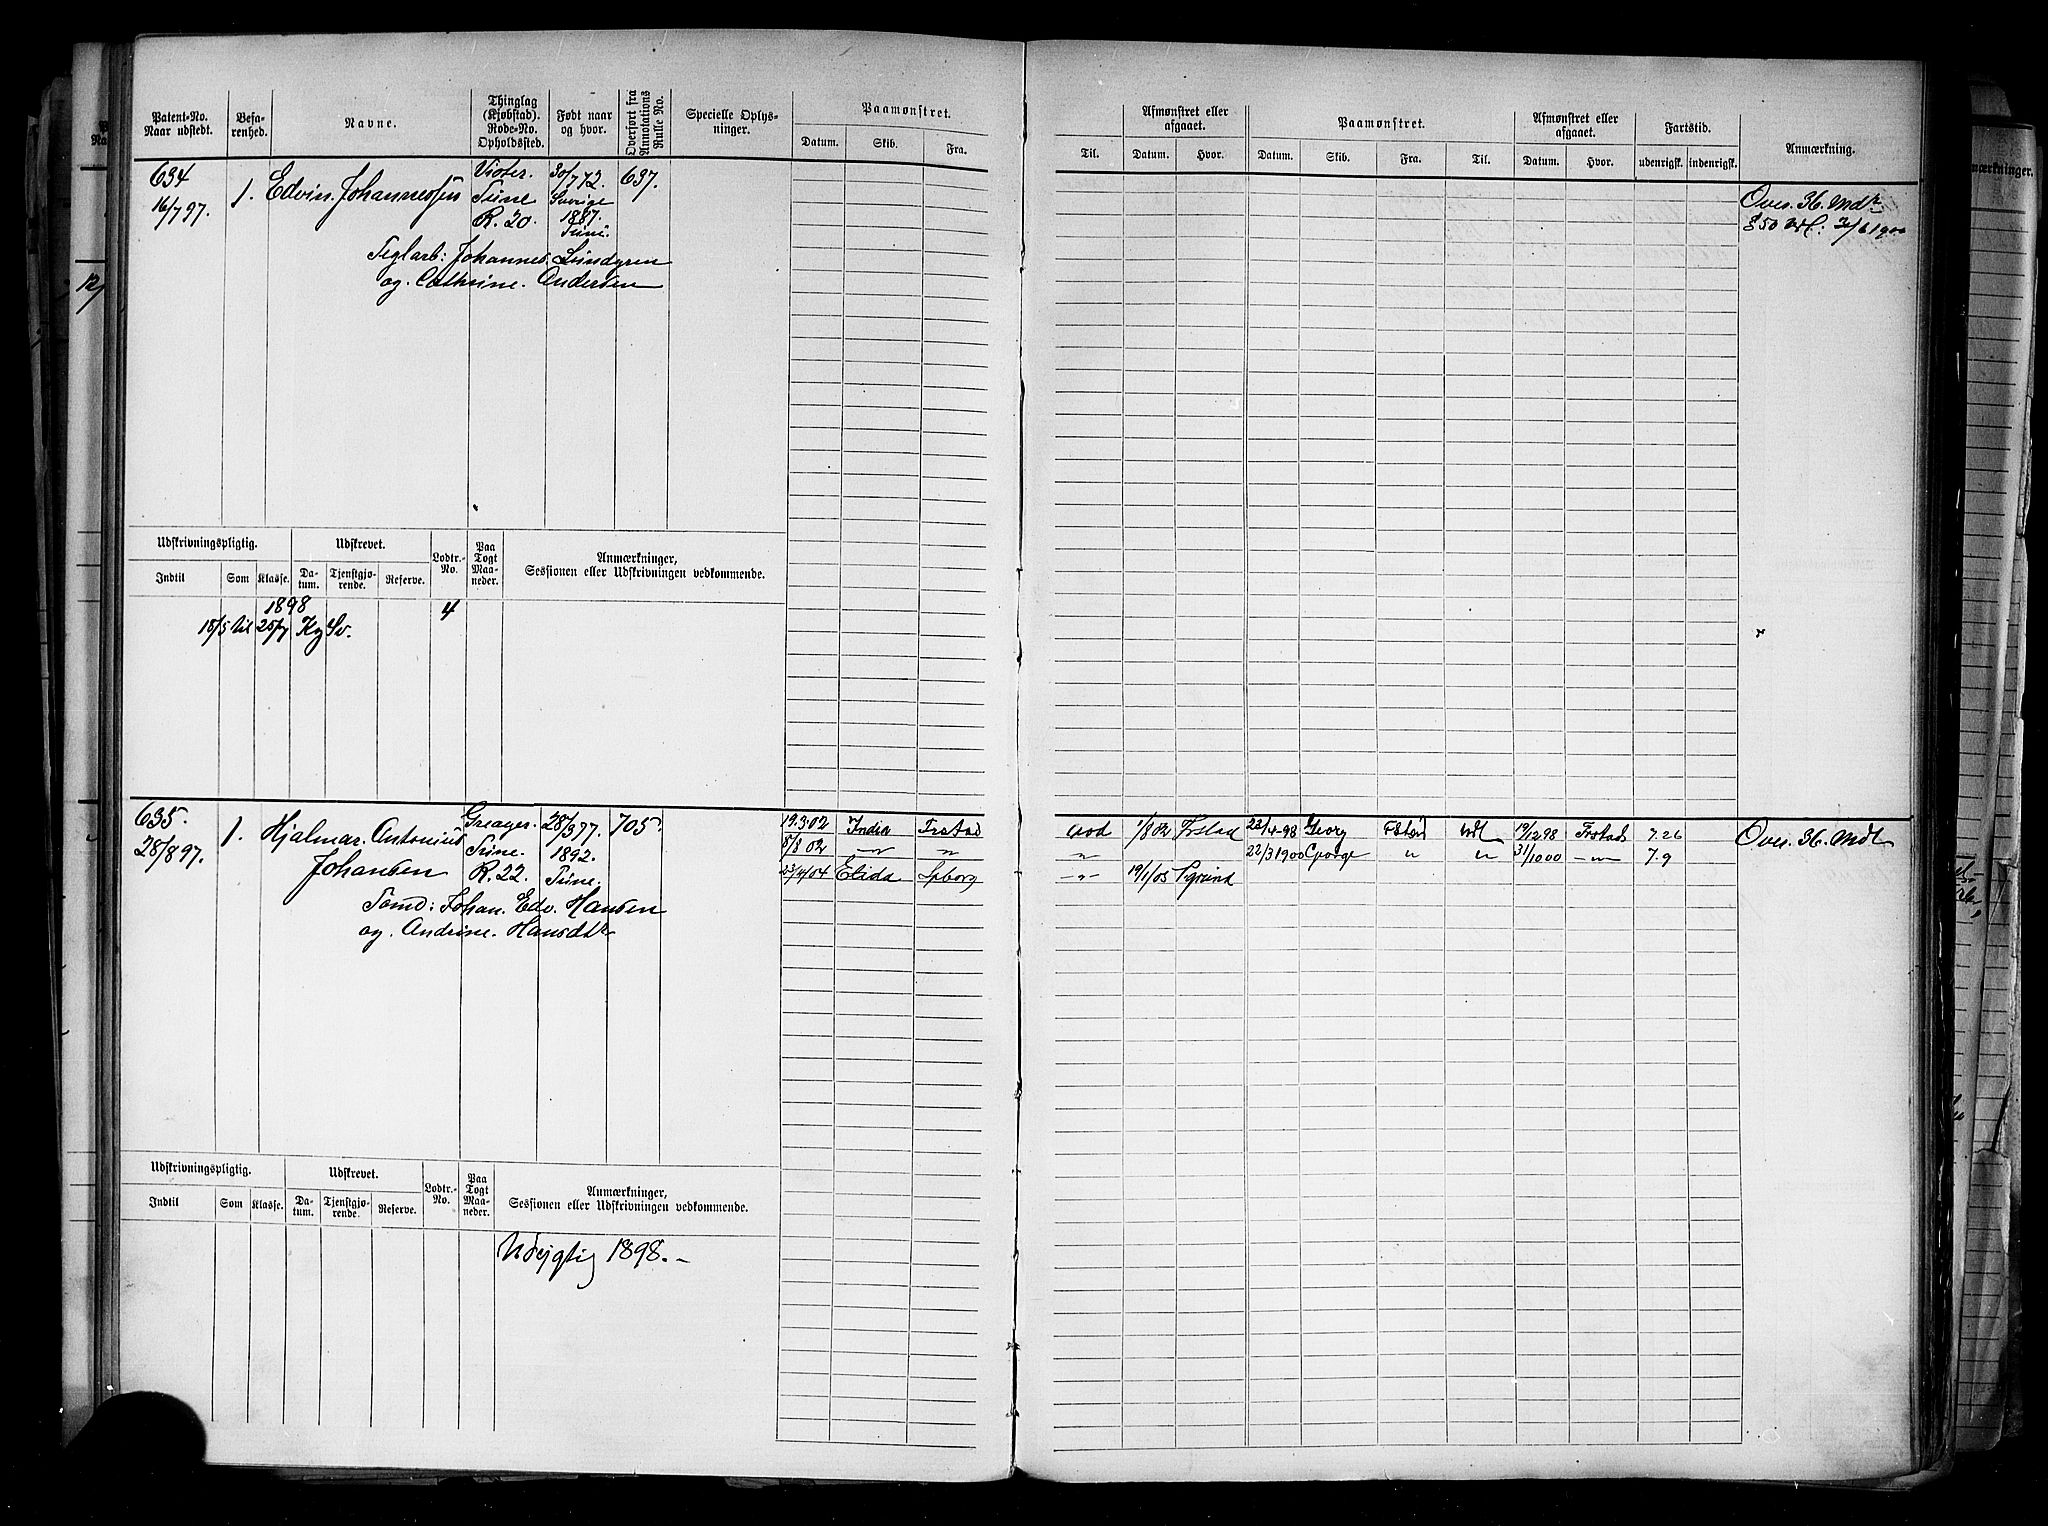 Patent-No. Naar udstedt. Befarenhed. Navne. Thinglag (Kjøbstad). Rode-No. Opholdssted. Født naar og hvor. Overført fra Annotations Rulle No. Specielle Oplysninger. Paamønstret. Datum. Skib. Fra.
Til. Afmønstret eller afgaaet. Datum. Hvor. Paamønstret. Datum. Skib. Fra. Til. Afmønstret eller afgaaet. Datum. Hvor. Fartstid. udenrigsk. indenrigsk. Anmærkning.
634 Vister. 30/7 72. 637.
16/7 97. 1. Edvin Johannessen Tune Sverige Over. 36. Mdr
R. 20. 1887. Tune. § 50
Teglarb: Johannes Lundgren
og Cathrine Andersen
Udskrivningspligtig. Udskrevet. Lodtr.-No. Paa Togt Maaneder. Anmærkninger, Sessionen eller Udskrivningen vedkommende.
Indtil Som Klasse. Datum. Tjenstgjørende. Reserve.
1898 4
15/5 til 25/7
635. Greager. 28/3 77. 705. 19.3.02 India Frstad 1/8 02 Frstad 23/4-98 Georg 19/12 98 Frstad 7.26
28/8 97. 1. Hjalmar Antonius Tune. 1892. 5/8 02 " " " 22/3 1900 George " " 31/10 00 " 7.9 Over. 36. Mdr
Johansen R. 22. Tune. 04 Elida Spborg " 19/1/05
Tomd: Johan Edv. Hansen
og Andrine Hansdtr
Udskrivningspligtig. Udskrevet. Lodtr.-No. Paa Togt Maaneder. Anmærkninger, Sessionen eller Udskrivningen vedkommende.
Indtil Som Klasse. Datum. Tjenstgjørende. Reserve.
Udygtig 1898.-